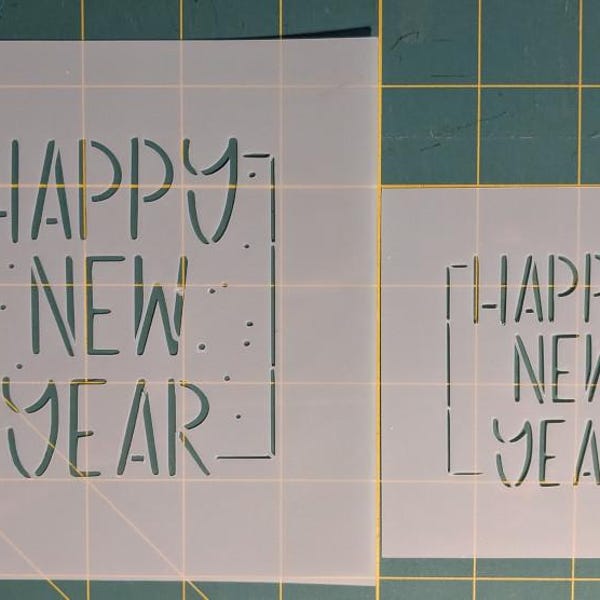 HAPPY
NEW
YEAR
HAPP
NEW
YEA